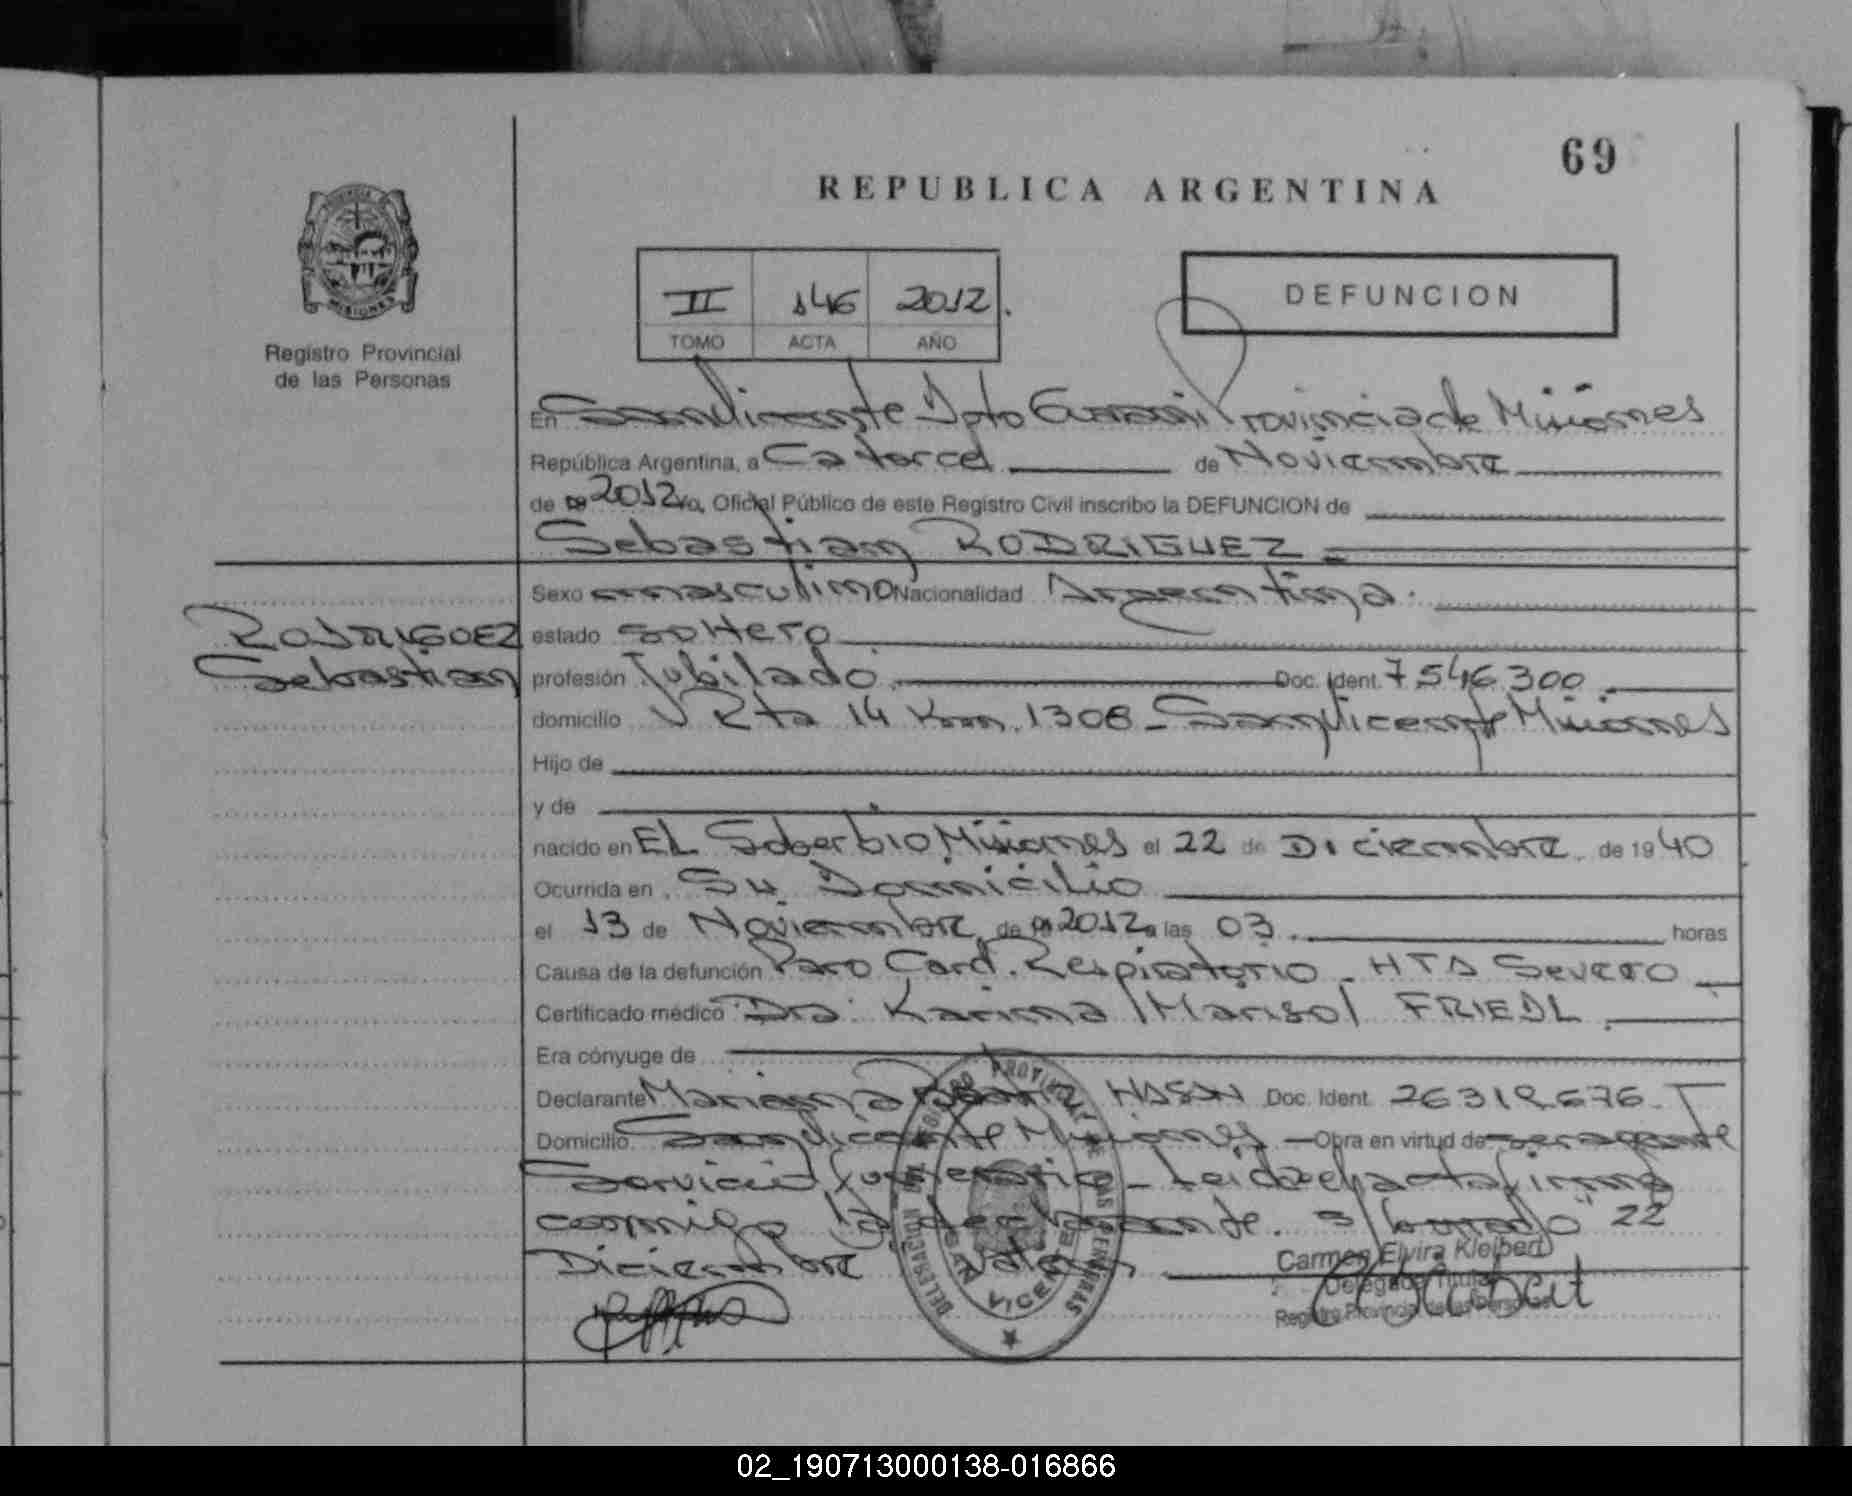 69
REPUBLICA ARGENTINA
PROVINCIA
MISIONES
Registro Provincial
de las Personas
II 146 2012.
TOMO ACTA AÑO
DEFUNCION
En San Vicente Dpto Guarani Provincia de Misiones
República Argentina, a Catorce de Noviembre
de 2012 Yo, Oficial Público de este Registro Civil inscribo la DEFUNCION de
Sebastian RODRIGUEZ
Sexo masculino Nacionalidad Argentina.
RODRIGUEZ
Sebastian
estado soltero
profesión Jubilado Doc. Ident. 7.546.300
domicilio Rta 14 Km. 1308 - San Vicente Misiones
Hijo de
y de
nacido en EL Soberbio Misiones el 22 de Diciembre de 1940
Ocurrida en Su Domicilio
el 13 de Noviembre de 2012 a las 03. horas
Causa de la defunción Paro Card. Respiratorio - HTA Severo
Certificado médico Dra. Karina Marisol FRIEDL
Era cónyuge de
Declarante Mariana HASAN Doc. Ident. 26319676
Domicilio San Vicente Misiones - Obra en virtud de ser agente
Servicio funerario - Leida el acta firma
conmigo la declarante. s/borrado 22
Diciembre Valen
Carmen Elvira Kleibert
Delegada Titular
Registro Provincial de las Personas
DELEGACION REGISTRO PROVINCIAL DE LAS PERSONAS
SAN VICENTE
02_190713000138-016866